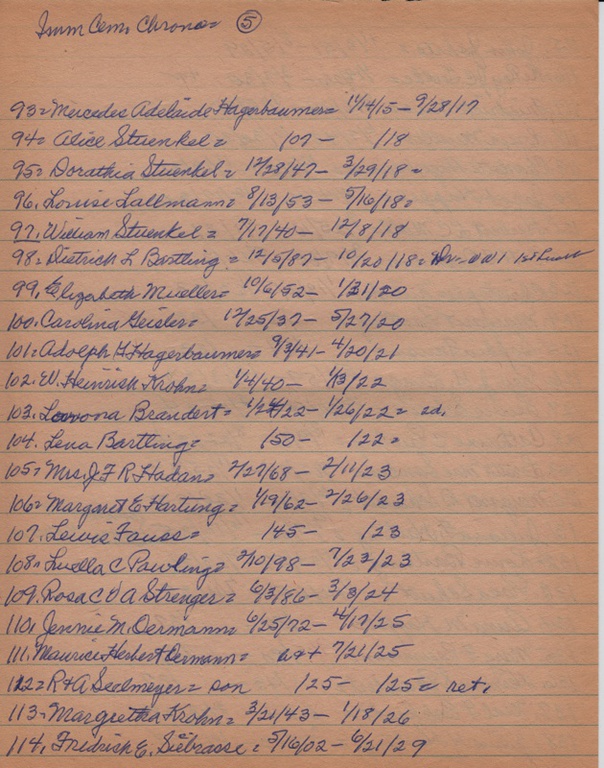 Imm Cem. Chrono= 5
93= Mercedes Adelaide Hagerbaumer= 11/14/15 - 9/28/17
94= Alice Stuenkel= /07 - /18
95= Dorathia Stuenkel= 12/28/47 - 3/29/18=
96. Louise Lallmann= 8/13/53 - 5/16/18=
97. William Stuenkel= 7/17/40 - 12/8/18
98= Dietrich L Bartling= 12/5/87 - 10/20/18= WW 1 1st Lieut
99. Elizabeth Mueller= 10/6/52 - 1/31/20
100. Carolina Geisler= 12/25/37 - 5/27/20
101= Adolph H Hagerbaumer= 9/3/41 - 4/20/21
102. W. Heinrich Krohn= 1/4/40 - 1/13/22
103. Brandert= 1/24/22 - 1/26/22= 2d.
104. Lena Bartling= /50 - /22=
105= Mrs. J F R Hadan= 2/27/68 - 2/11/23
106= Margaret E Hartung= 1/19/62 - 2/26/23
107. Lewis Fauss= /45 - /23
108= Luella C Pawling= 2/10/98 - 7/23/23
109. Rosa C V A Strenger= 6/3/86 - 3/3/24
110. Jennie M. Oermann= 6/25/72 - 4/17/25
111. Maurice Herbert Oermann= b+t 7/21/25
112= R+A Seelmeyer= son /25 - /25= ret.
113= Margretha Krohn= 3/21/43 - 1/18/26
114. Fredrich E. Siebrasse= 5/16/02 - 6/21/29